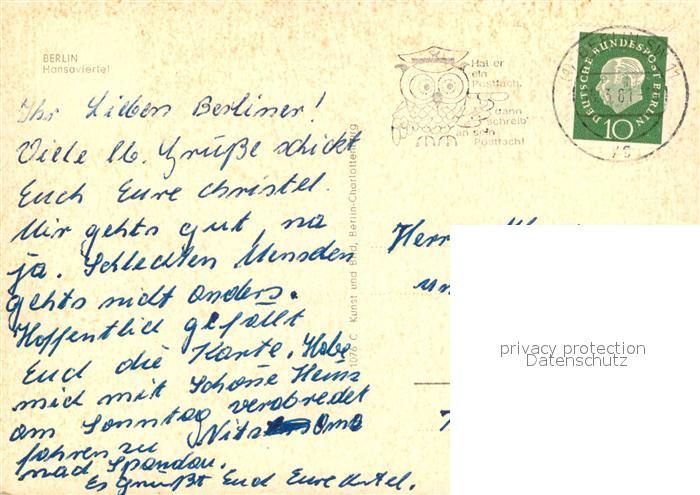 BERLIN
Hansaviertel
Hat er
ein
Postfach,
dann
schreib'
an sein
Postfach!
DEUTSCHE BUNDESPOST BERLIN
10
Ihr Lieben Berliner!
Viele lb. Grüße schickt
Euch Eure Christel.
Mir gehts gut, na
ja. Schlechten Mensden
gehts nicht anders.
Hoffentlich gefällt
Eud die Karte. Habe
mich mit Heinz
am Sonntag verabredet
Oma
fahren zu
nad Spandau.
Es grüßt Eud Eure
1076 C Kunst und Bild, Berlin-Charlottenburg
Herrn
privacy protection
Datenschutz